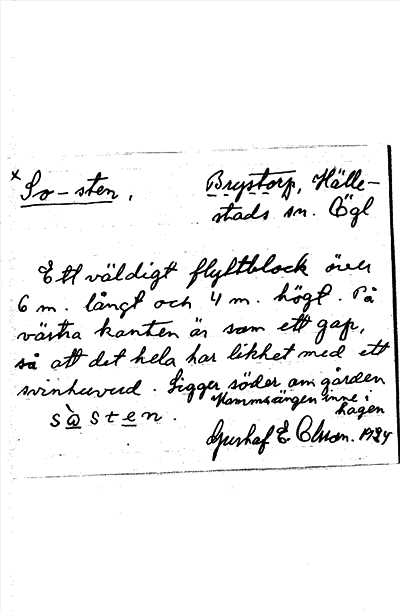 x So-sten, Brystorp, Hälle-
stads sn. Ögl
Ett väldigt flyttblock över
6 m. långt och 4 m. högt. På
västra kanten är som ett gap,
så att det hela har likhet med ett
svinhuvud. Ligger söder om gården
Kommsängen inne i
hagen
sòsten.
Gustaf E Olsson. 1924